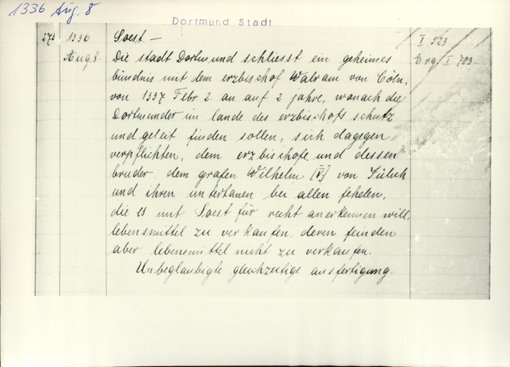 1336 Aug. 8
Dortmund Stadt
573 1336 Soest – I 523
Aug 8. Die stadt Dortmund schliesst ein geheimes Erg I 703.
bündnis mit dem erzbischof Walram von Cöln,
von 1337 Febr 2 an auf 2 jahre, wonach die
Dortmunder im lande des erzbischofs schutz
und geleit finden sollen, sich dagegen
verpflichten, dem erzbischofe und dessen
bruder dem grafen Wilhelm (V) von Jülich
und ihren untertanen bei allen fehden,
die es mit Soest für recht anerkennen will,
lebensmittel zu verkaufen, deren feinden
aber lebensmittel nicht zu verkaufen.
Unbeglaubigte gleichzeitige ausfertigung.